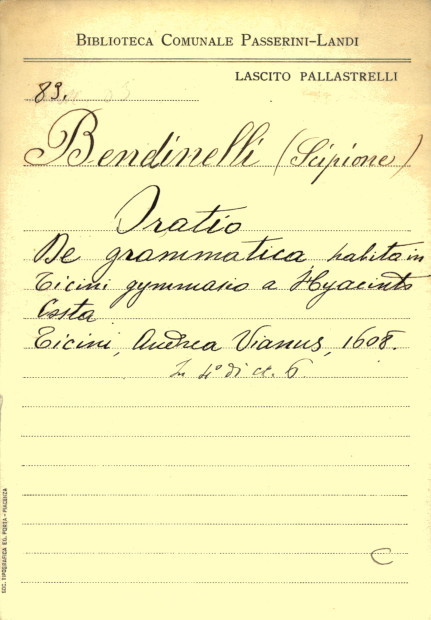 BIBLIOTECA COMUNALE PASSERINI-LANDI
LASCITO PALLASTRELLI
83.
Bendinelli (Scipione)
Oratio
De grammatica habita in
Ticini gymnasio a Hyacinto
Costa
Ticini, Andrea Vianus, 1608.
In 4° di ct. 6.
C
SOC. TIPOGRAFICA ED. PORTA - PIACENZA